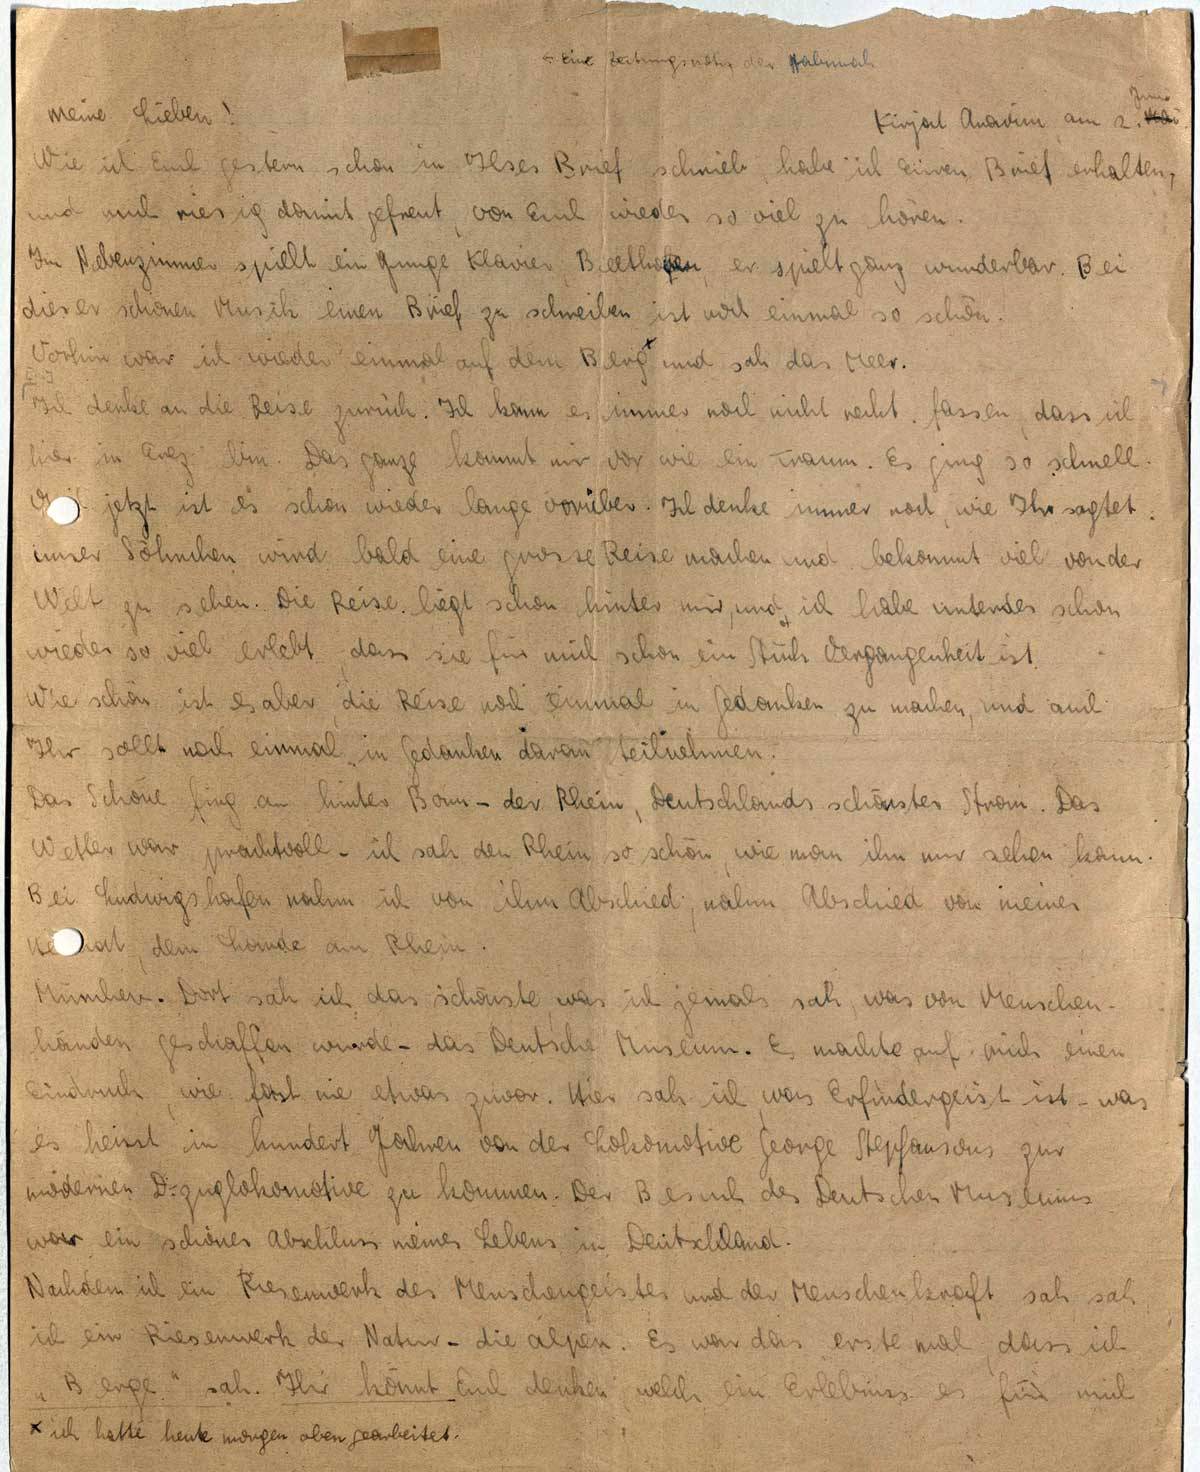 Eine Zeitungsnotiz der
Meine Lieben!
Kirjat Anavim, am 2. Juni
Wie ich Euch gestern schon in Ilses Brief schrieb, habe ich Euren Brief erhalten,
und mich riesig damit gefreut, von Euch wieder so viel zu hören.
Im Nebenzimmer spielt ein Junge Klavier, Beethofen, er spielt ganz wunderbar. Bei
dieser schönen Musik einen Brief zu schreiben ist noch einmal so schön.
Vorhin war ich wieder einmal auf dem Berg x und sah das Meer.
Ich denke an die Reise zurück. Ich kann es immer noch nicht recht fassen, dass ich
hier in Erez bin. Das ganze kommt mir vor wie ein Traum. Es ging so schnell.
jetzt ist es schon wieder lange vorüber. Ich denke immer noch, wie Ihr sagtet:
unser Söhnchen wird bald eine grosse Reise machen und bekommt viel von der
Welt zu sehen. Die Reise liegt schon hinter mir, und ich habe unterdes schon
wieder so viel erlebt, dass sie für mich schon ein Stück Vergangenheit ist.
Wie schön ist es aber, die Reise noch einmal in Gedanken zu machen, und auch
Ihr sollt noch einmal in Gedanken daran teilnehmen.
Das Schöne fing an hinter Bonn - der Rhein, Deutschlands schönster Strom. Das
Wetter war prachtvoll - ich sah den Rhein so schön, wie man ihn nur sehen kann.
Bei Ludwigshafen nahm ich von ihm Abschied, nahm Abschied von meiner
Heimat, dem Lande am Rhein.
München. Dort sah ich das schönste, was ich jemals sah, was von Menschen-
händen geschaffen wurde - das Deutsche Museum. Es machte auf mich einen
Eindruck, wie fast nie etwas zuvor. Hier sah ich, was Erfindergeist ist - was
es heisst in hundert Jahren von der Lokomotive George Stepfansons zur
modernen D-zuglokomotive zu kommen. Der Besuch des Deutschen Museums
war ein schöner Abschluss meines Lebens in Deutschland.
Nachdem ich ein Riesenwerk des Menschengeistes und der Menschenkraft sah, sah
ich ein Riesenwerk der Natur - die Alpen. Es war das erste mal, dass ich
„Berge" sah. Ihr könnt Euch denken, welch ein Erlebniss es für mich
x ich hatte heute morgen oben gearbeitet.